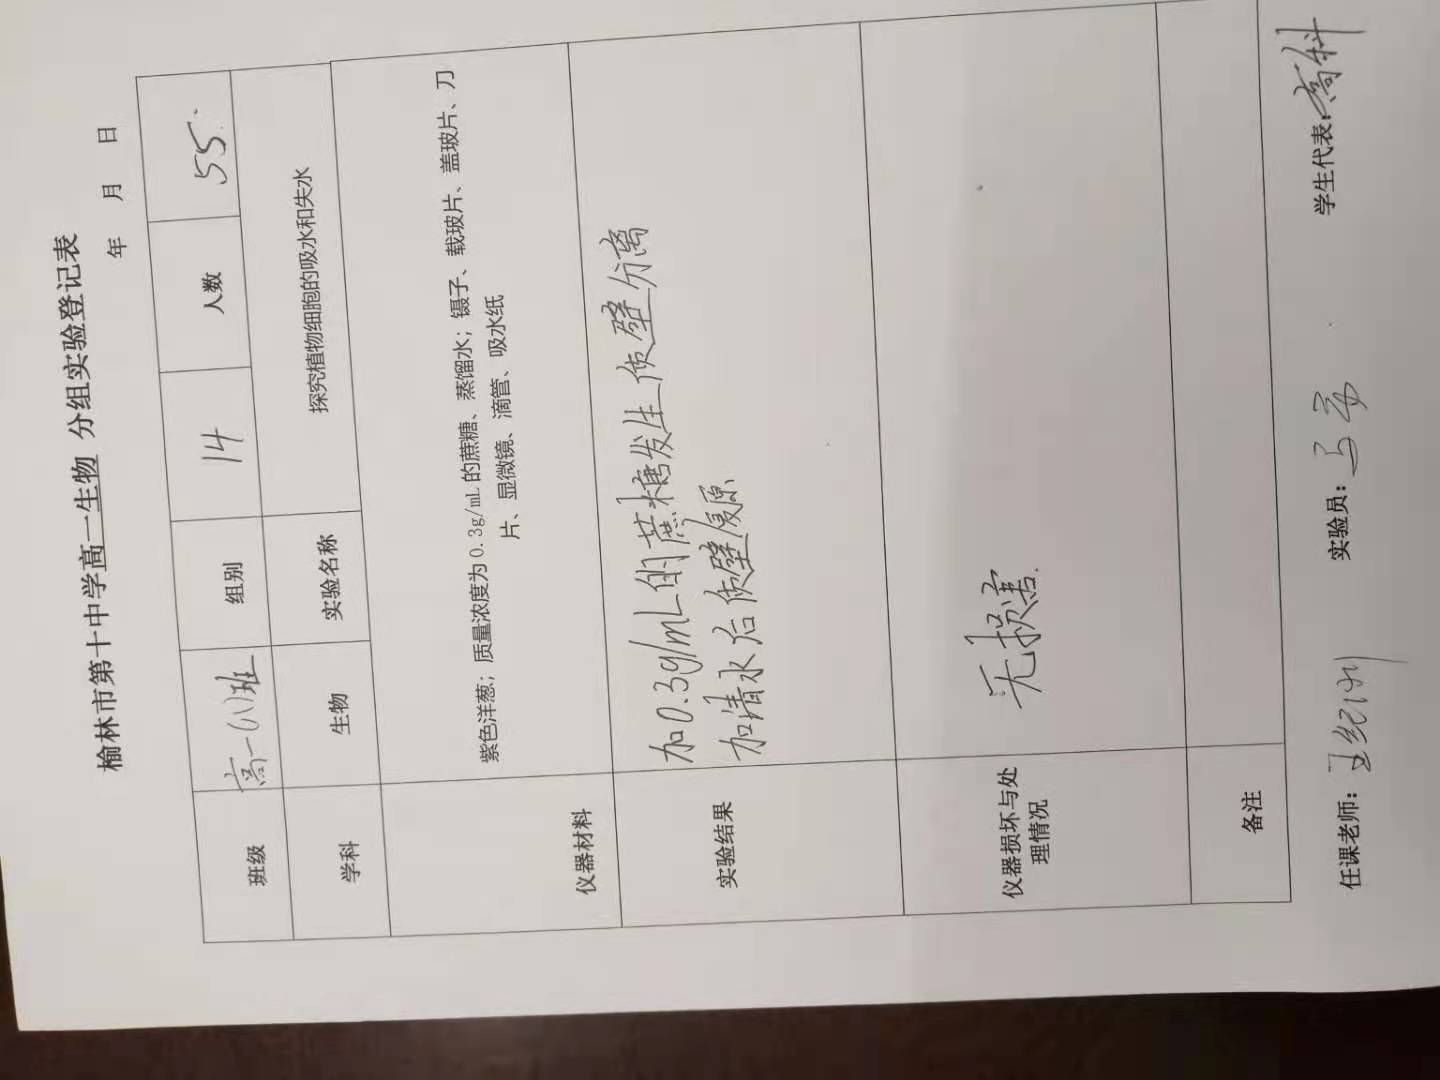 榆林市第十中学高一生物 分组实验登记表
年 月 日
班级 高一(1)班 组别 14 人数 55
学科 生物 实验名称 探究植物细胞的吸水和失水
仪器材料 紫色洋葱；质量浓度为0.3g/mL的蔗糖、蒸馏水；镊子、载玻片、盖玻片、刀
片、显微镜、滴管、吸水纸
实验结果 加0.3g/mL的蔗糖发生质壁分离
加清水后质壁复原
仪器损坏与处
理情况 无损害.
备注
任课老师： 实验员： 学生代表：